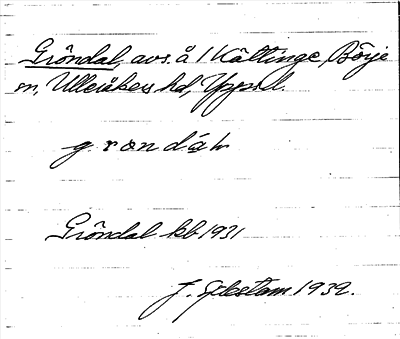 Gröndal, avs. å 1 Källinge, Börje
sn, Ulleråkers hd, Uppsl.
g. rönda̍l
Gröndal kb 1931
J. Sjlestam 1932.